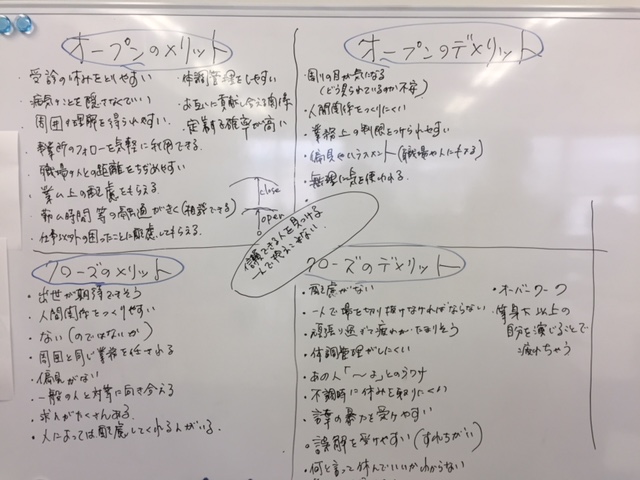 オープンのメリット
・受診の休みをとりやすい
・病気のことを隠さなくていい
・周囲の理解を得られやすい.
・事業所のフォローを気軽に利用できる.
・職場の人との距離をちぢめやすい
・業ム上の配慮をもらえる
・勤ム時間等の融通がきく(相談できる)
・仕事以外の困ったことに配慮してもらえる.
・体調管理をしやすい
・お互いに貢献し合える関係
・定着する確率が高い
オープンのデメリット
・周りの目が気になる
(どう見られているのか不安)
・人間関係をつくりにくい
・業務上の制限をつけられやすい
・偏見やハラスメント(職場や人にもよる)
・無理に気を使われる.
close
open
信頼できる人を見つける
一人で抱えこまない.
クローズのメリット
・出世が期待できそう
・人間関係をつくりやすい
・ない(のではないか)
・周囲と同じ業務を任される
・偏見がない
・一般の人と対等に向き合える
・求人がたくさんある
・人によっては配慮してくれる人がいる.
クローズのデメリット
・配慮がない
・一人で場を切り抜けなければならない
・頑張り過ぎて疲れがたまりそう
・体調管理がしにくい
・あの人「〜よ」とのウワサ
・不調時に休みを取りにくい
・言葉の暴力を受けやすい
・誤解を受けやすい(すれちがい)
・何と言って休んでいいかわからない
・オーバーワーク
・等身大以上の
自分を演じることで
疲れちゃう